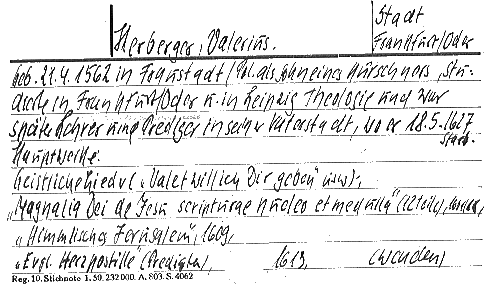 Herberger, Valerius.
Stadt
Frankfurt/Oder
geb. 21.4.1562 in Fraustadt/Pol. als Sohn eines Kürschners, stu-
dierte in Frankfurt/Oder u. in Leipzig Theologie und war
später Lehrer und Prediger in seiner Vaterstadt, wo er 18.5.1627
starb.
Hauptwerke:
Geistliche Lieder („Valet will ich Dir geben" usw.),
„Magnalia Dei de Jesu scripturae nucleo et medulla" (12 Teile),
„Himmlisches Jerusalem", 1609,
„Evgl. Herzpostille" (Predigten), 1613,
Reg. 10. Stichnote 1. 50. 232 000. A. 803. S. 4062